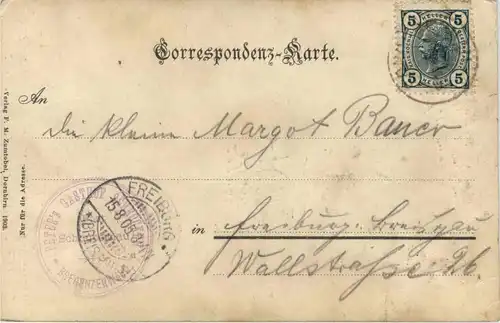 Correspondenz-Karte.
5 HELLER 5
5 HELLER 5
An
Die kleine Margot Bauer
in Freiburg. Breisgau
Wallstrasse 26.
FREIBURG
Verlag F. M. Zumtobel, Dornbirn. 1903.
Nur für die Adresse.